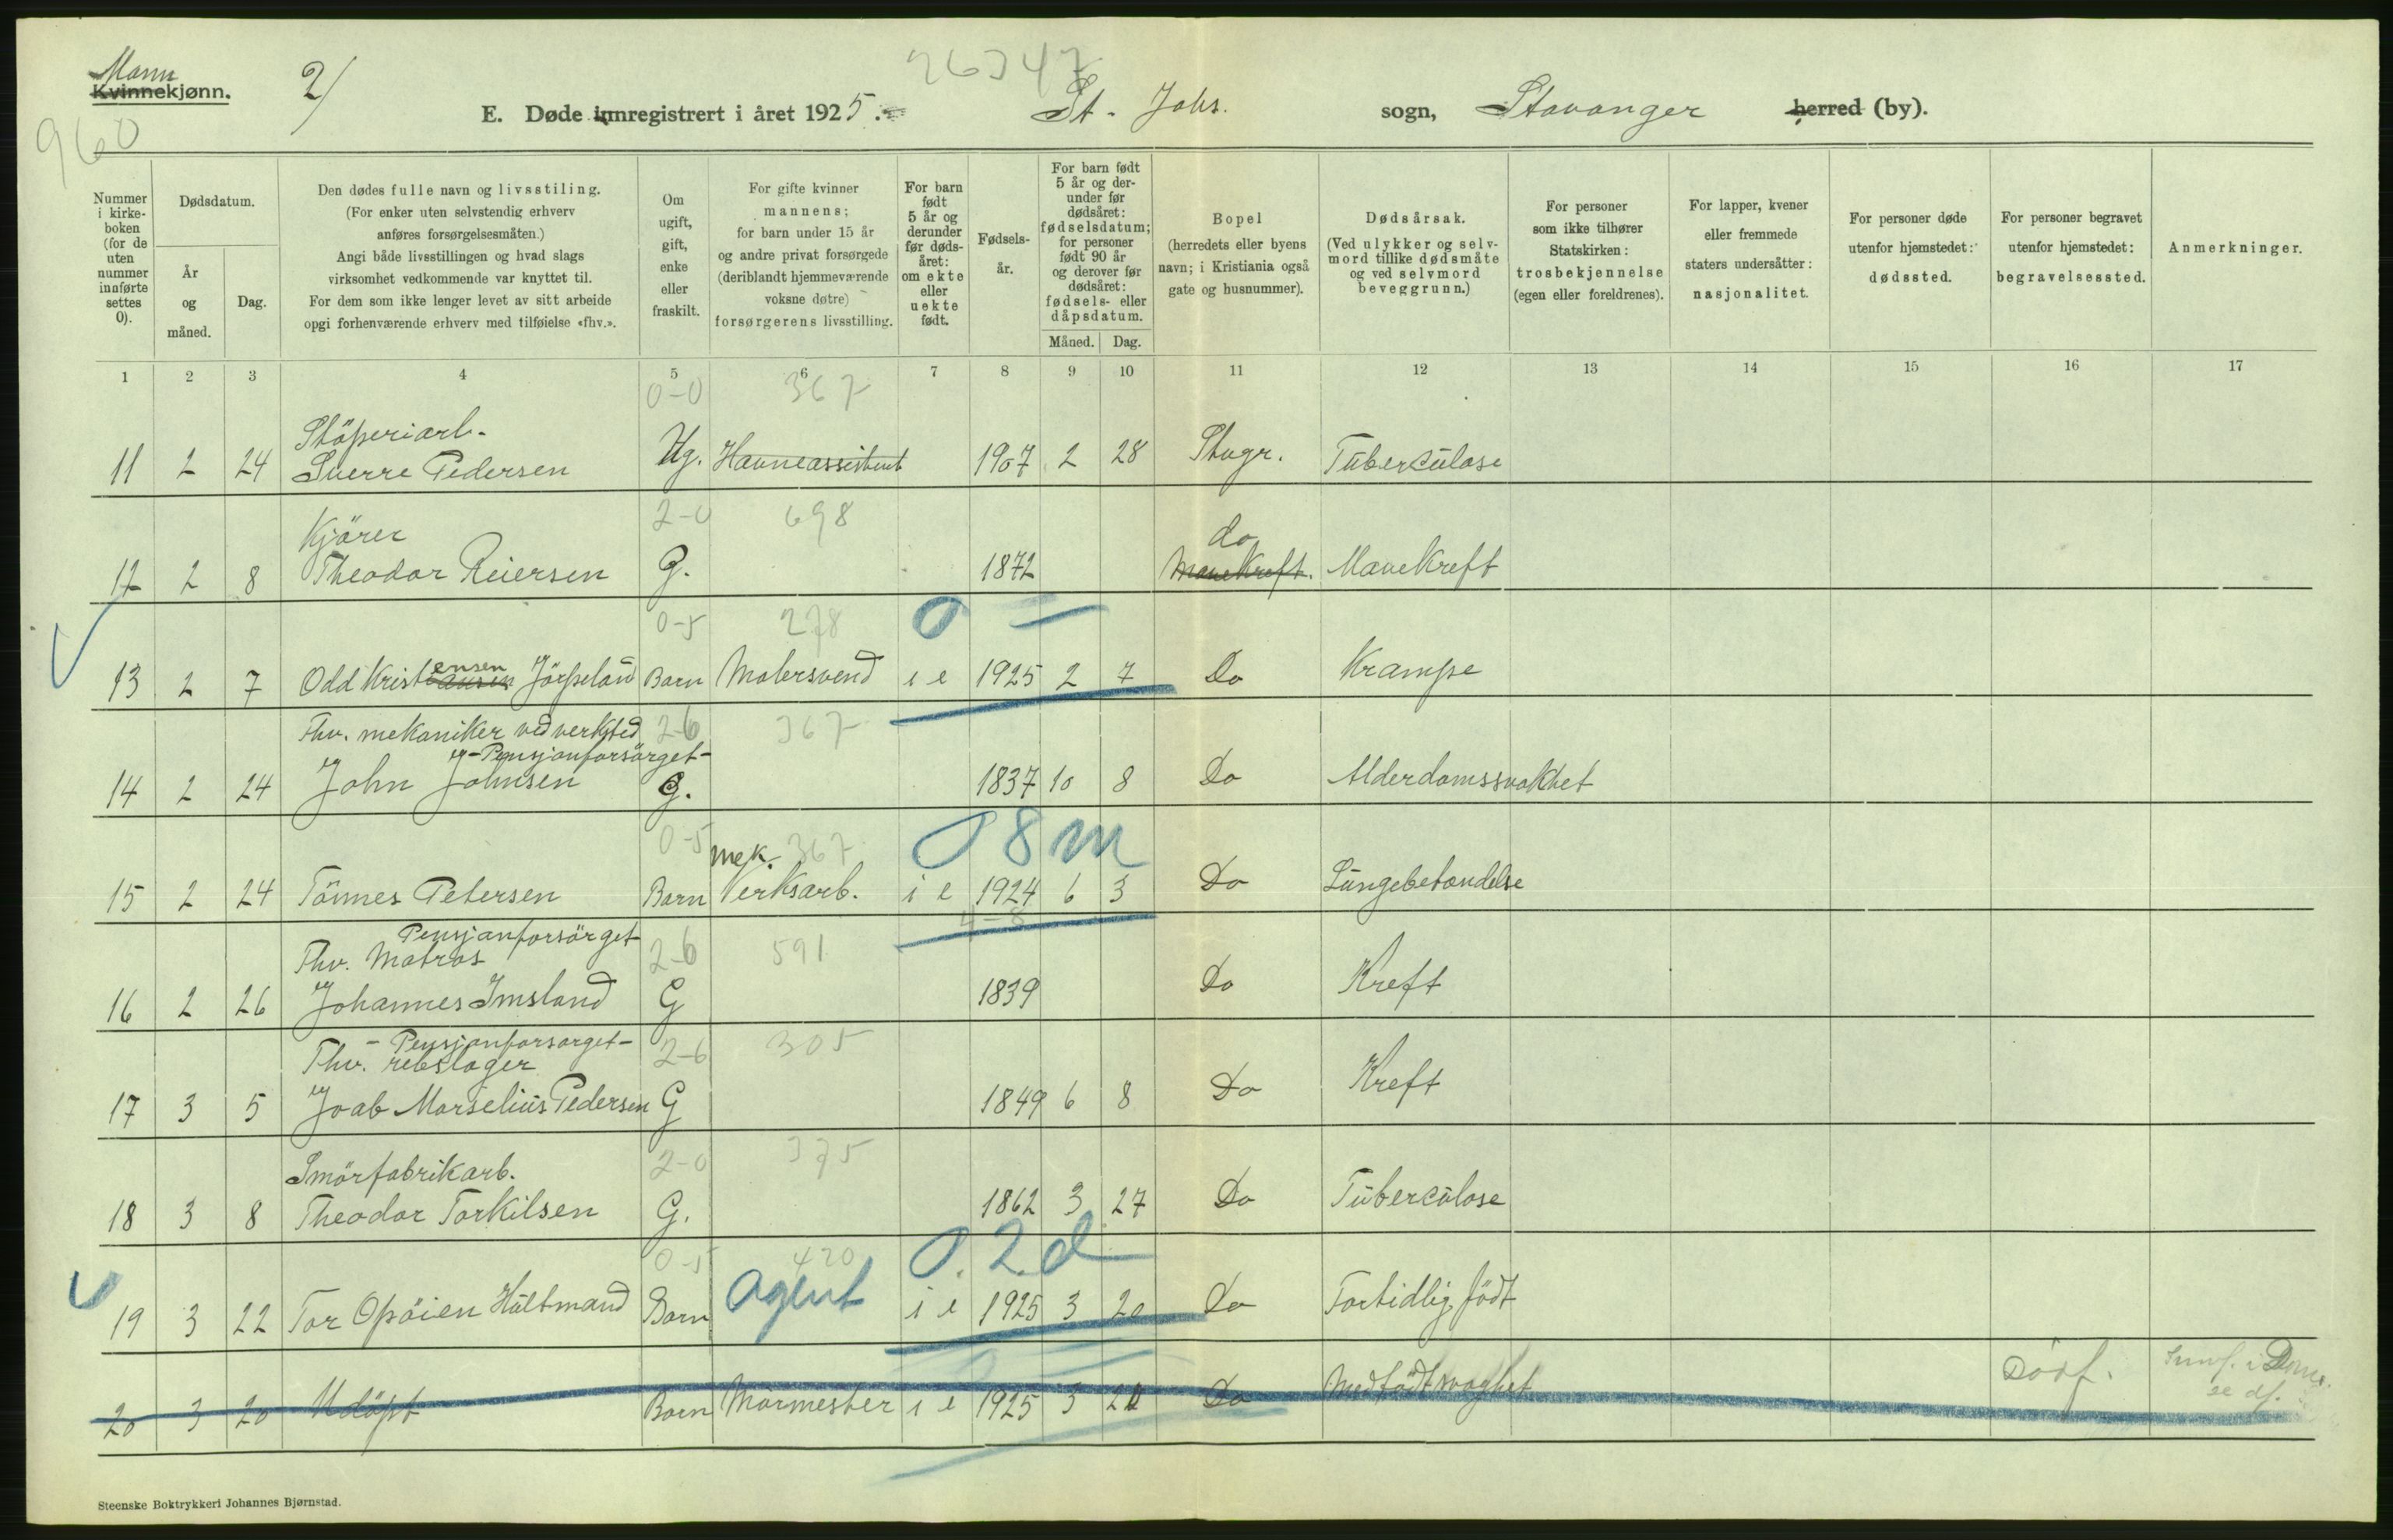 Mann
Kvinnekjønn.
2/
26347
960
E. Døde innregistrert i året 1925. St. Johs. sogn, Stavanger herred (by).
Nummer i kirkeboken (for de uten nummer innførte settes 0).
Dødsdatum.
År og måned.
Dag.
Den dødes fulle navn og livsstiling.
(For enker uten selvstendig erhverv
anføres forsørgelsesmåten.)
Angi både livsstillingen og hvad slags
virksomhet vedkommende var knyttet til.
For dem som ikke lenger levet av sitt arbeide
opgi forhenværende erhverv med tilføielse «fhv.».
Om ugift, gift, enke eller fraskilt.
For gifte kvinner
mannens;
for barn under 15 år
og andre privat forsørgede
(deriblandt hjemmeværende
voksne døtre)
forsørgerens livsstilling.
For barn født 5 år og derunder før dødsåret: om ekte eller uekte født.
Fødselsår.
For barn født 5 år og derunder før dødsåret: fødselsdatum; for personer født 90 år og derover før dødsåret: fødsels- eller dåpsdatum.
Måned. Dag.
Bopel
(herredets eller byens
navn; i Kristiania også
gate og husnummer).
Dødsårsak.
(Ved ulykker og selvmord tillike dødsmåte og ved selvmord beveggrunn.)
For personer
som ikke tilhører
Statskirken:
trosbekjennelse
(egen eller foreldrenes).
For lapper, kvener
eller fremmede
staters undersåtter:
nasjonalitet.
For personer døde
utenfor hjemstedet:
dødssted.
For personer begravet
utenfor hjemstedet:
begravelsessted.
Anmerkninger.
1 2 3 4 5 6 7 8 9 10 11 12 13 14 15 16 17
0-0 367
Støperiarb.
11 2 24 Sverre Pedersen Ug. Havneassistent 1907 2 28 Stvgr. Tuberculose
2-0 698
Kjörer do
12 2 8 Theodor Reiersen G. 1872 Mavekreft. Mavekreft
0-5 278 0
ensen
13 2 7 Odd Kristiansen Jörpeland Barn Malersvend i e 1925 2 7 Do Krampe
Fhv. mekaniker ved verksted 2-6 367
-Pensjonforsörget-
14 2 24 John Johnsen G. 1837 10 8 Do Alderdomssvakhet
0-5 mek. 367 0 8 m
15 2 24 Tönnes Petersen Barn Verksarb. i e 1924 6 3 Do Lungebetendelse
4-8
Pensjonforsörget
Fhv. Matros 2-6 591
16 2 26 Johannes Imsland G 1839 Do Kreft
- Pensjonforsorget-
Fhv. rebslager 2-6 305
17 3 5 Joab Marselius Pedersen G 1849 6 8 Do Kreft
2-0 375
Smörfabrikarb.
18 3 8 Theodor Torkilsen G. 1862 3 27 Do Tuberculose
0-5 420 0. 2 d
19 3 22 Tor Opöien Hultmand Barn Agent i e 1925 3 20 Do Fortidlig födt
20 3 20 Udöpt Barn Murmester i e 1925 3 20 Do Medfödt svaghet Dödf.
se df.
Steenske Boktrykkeri Johannes Bjørnstad.